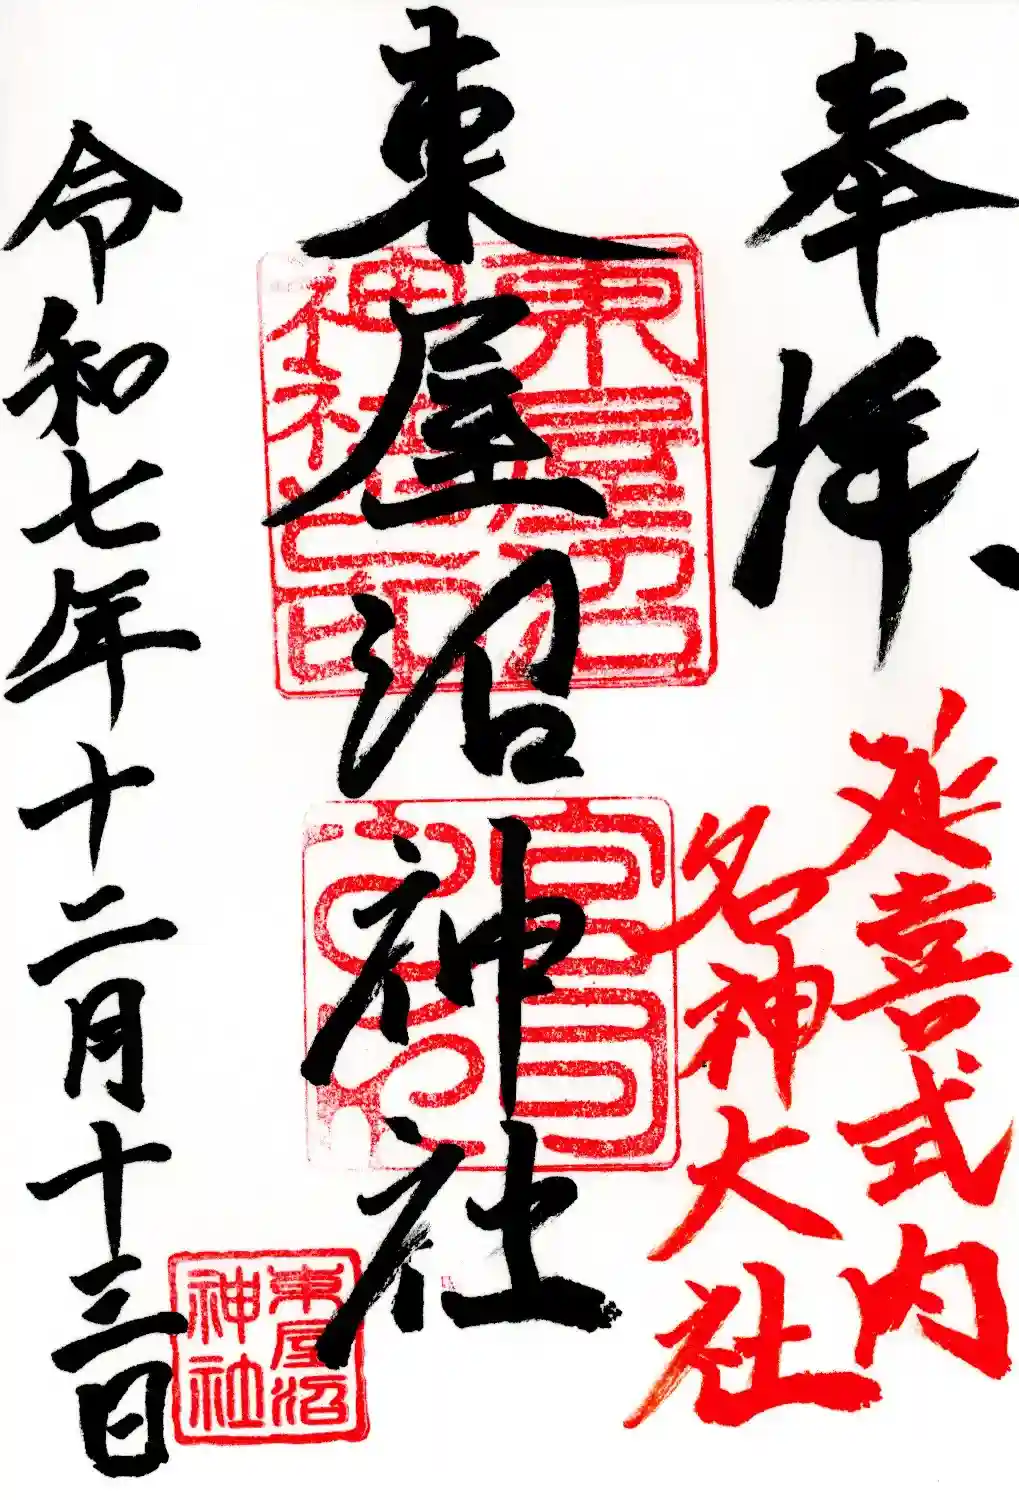 奉拝
延喜式内
名神大社
東屋沼神社
東屋沼
神社印
令和七年十二月十三日
東屋沼
神社